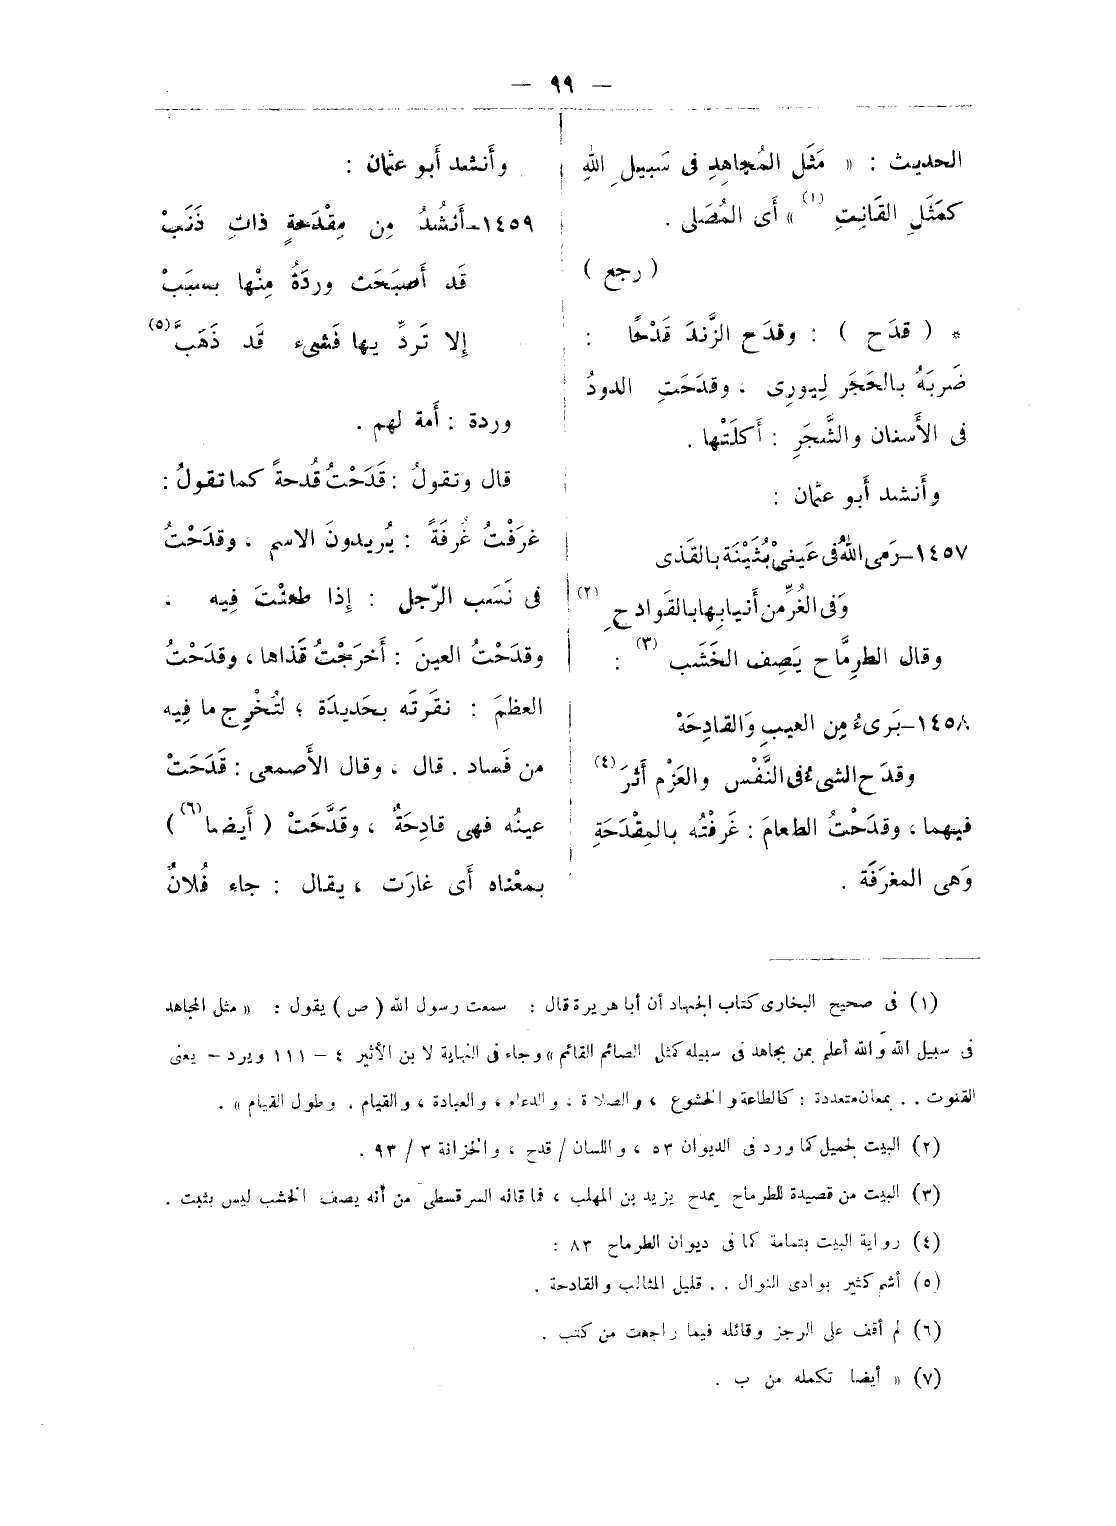 — ٩٩ —
الحديث : « مَثَل المُجاهِدِ فى سَبيلِ اللهِ
كمَثَلِ القَانِتِ (١) » أَى المُصَلى .
( رجع )
* ( قدَح ) : وقدَح الزَّندَ قَدْحًا :
ضَربَهُ بالحَجَر لِيورِى ، وقدَحَتِ الدودُ
فى الأَسنان والشَّجَرِ : أَكلَتْها .
وأَنشد أَبو عثمان :
١٤٥٧–رَمى اللهُ فى عَينىْ بُثَيْنَة بالقَذى
وَفى الغُرِّ من أَنيابِها بالقَوادحِ (٢)
وقال الطرِمَّاح يَصِف الخَشَب (٣) :
١٤٥٨–بَرىءُ مِن العيبِ وَالقادِحَهْ
وقدَح الشىءُ فى النَّفْس والعَزْم أَثرَ (٤)
فيهما ، وقدَحْتُ الطعامَ : غَرفْتُه بالمِقْدَحَةِ
وَهى المغرَفَة .
وأَنشد أَبو عثمان :
١٤٥٩–أَنشُدُ مِن مِقْدَحةٍ ذاتِ ذَنَبْ
قَد أَصبَحَت وردَةُ مِنْها بسبَبْ
إلا تَردِّ يها فَشىء قَد ذَهَبْ (٥)
وردة : أَمة لهم .
قال وتقولُ : قَدَحْتُ قُدحةً كما تقولُ :
غرَفْتُ غُرفَةً : يُريدونَ الاسم ، وقدَحْتُ
فى نَسَب الرّجل : إذا طعنْتَ فِيه .
وقدَحْتُ العينَ : أَخرَجْتُ قَذاها ، وقدَحْتُ
العظمَ : نقرَته بحَديدَة ؛ لتُخْرِج ما فِيه
من فَساد . قال ، وقال الأَصمعى : قَدَحَتْ
عينُه فهى قادِحَةٌ ، وقَدَّحَتْ ( أَيضا (٦) )
بمعْناه أَى غارَت ، يقال : جاء فُلانٌ
(١) فى صحيح البخارى كتاب الجهاد أن أبا هريرة قال : سمعت رسول الله ( ص ) يقول : « مثل المجاهد
فى سبيل الله والله أعلم بمن يجاهد فى سبيله كمثل الصائم القائم » وجاء فى النهاية لابن الأثير ٤ – ١١١ ويرد – يعنى
القنوت . . بمعان متعددة : كالطاعة والخشوع ، والصلاة ، والدعاء ، والعبادة ، والقيام . وطول القيام » .
(٢) البيت لجميل كما ورد فى الديوان ٥٣ ، واللسان / قدح ، والخزانة ٣ / ٩٣ .
(٣) البيت من قصيدة للطرماح يمدح يزيد بن المهلب ، فما قاله السرقسطى من أنه يصف الخشب ليس بثبت .
(٤) رواية البيت بتمامة كما فى ديوان الطرماح ٨٣ :
(٥) أشم كثير بوادى النوال . . قليل المثالب والقادحة .
(٦) لم أقف على الرجز وقائله فيما راجعت من كتب .
(٧) « أيضا تكمله من ب .